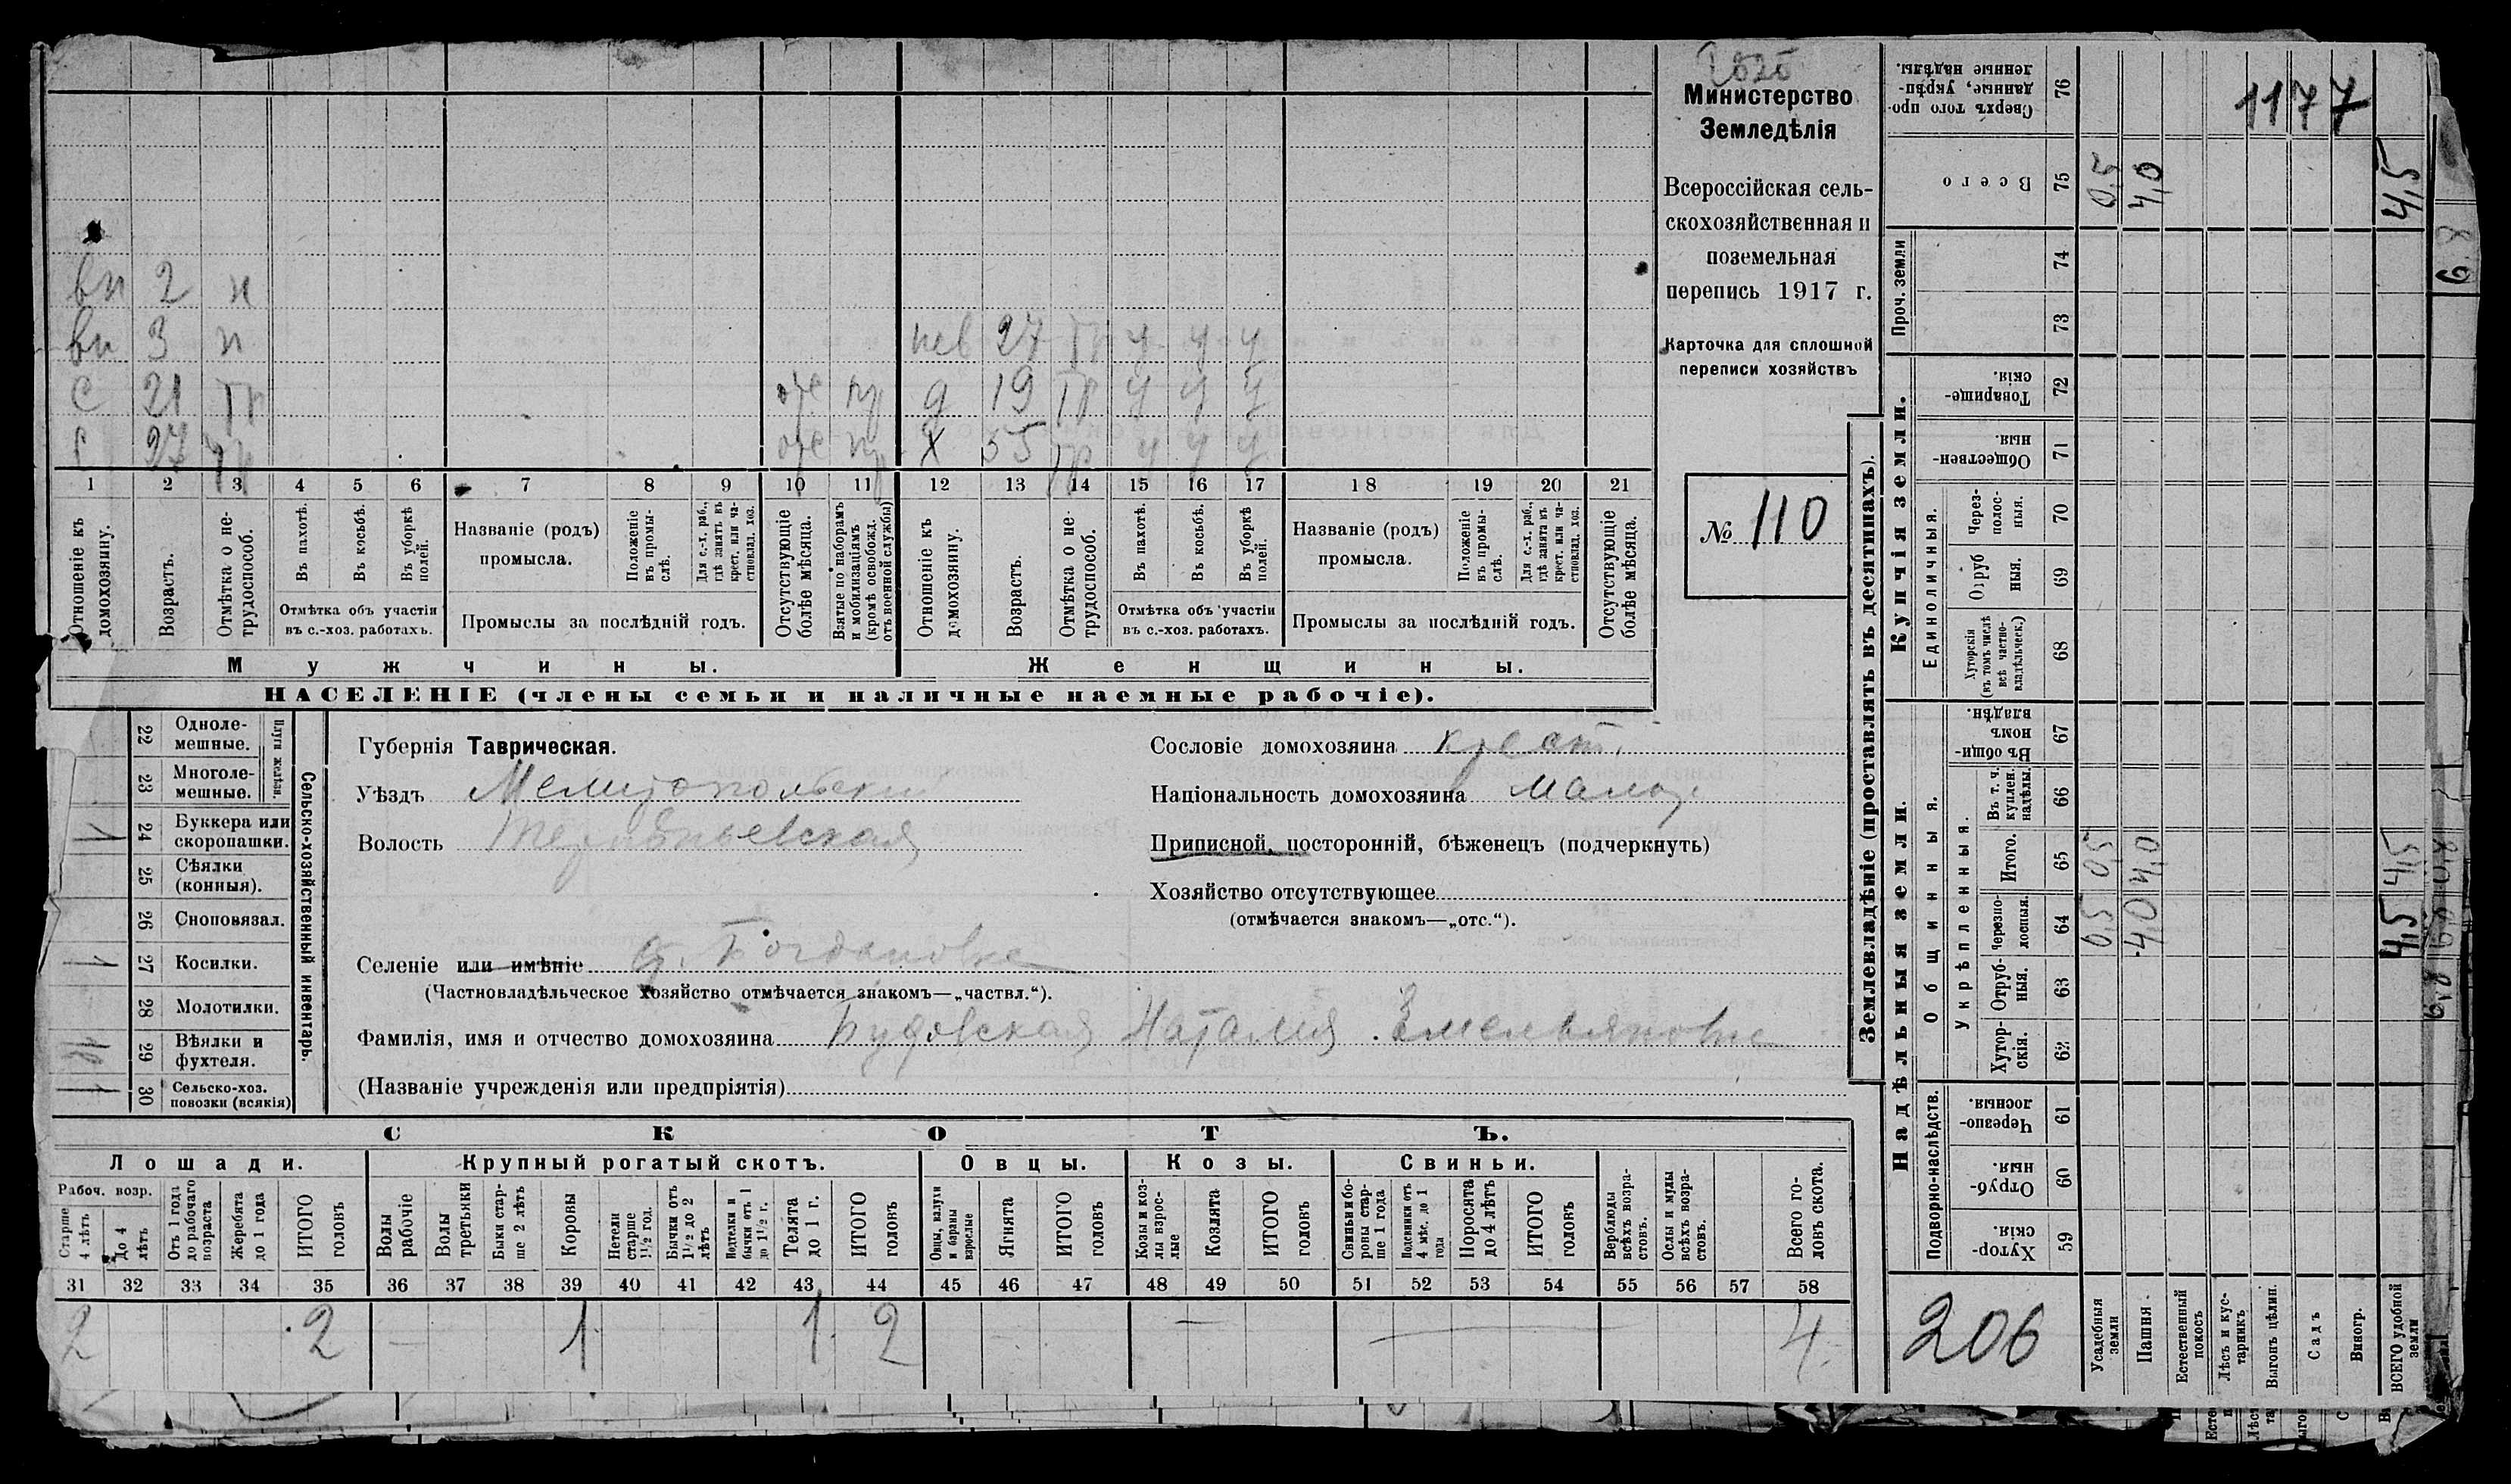 1177
Министерство
Земледѣлія
Всероссійская сель-
скохозяйственная и
поземельная
перепись 1917 г.
Карточка для сплошной
переписи хозяйствъ
№ 110
вн 2 н
вн 3 н
нев 27 тр у у у
с 21 тр
д 19 тр у у у
с 27 тр
х 55 тр у у у
1 2 3 4 5 6 7 8 9 10 11 12 13 14 15 16 17 18 19 20 21
Отношеніе къ домохозяину.
Возрастъ.
Отмѣтка о не-
трудоспособ.
Въ пахотѣ.
Въ косьбѣ.
Въ уборкѣ
полей.
Отмѣтка объ участіи
въ с.-хоз. работахъ.
Названіе (родъ)
промысла.
Положеніе
въ промы-
слѣ.
Для с.-х. раб.,
гдѣ занятъ въ
крест. или ча-
стновлад. хоз.
Промыслы за послѣдній годъ.
Отсутствующіе
болѣе мѣсяца.
Взятые по наборамъ
и мобилизаціямъ
(кромѣ освобожд.
отъ военной службы)
Отношеніе къ
домохозяину.
Возрастъ.
Отмѣтка о не-
трудоспособ.
Въ пахотѣ.
Въ косьбѣ.
Въ уборкѣ
полей.
Отмѣтка объ участіи
въ с.-хоз. работахъ.
Названіе (родъ)
промысла.
Положеніе
въ промы-
слѣ.
Для с.-х. раб.,
гдѣ занята въ
крест. или ча-
стновлад. хоз.
Промыслы за послѣдній годъ.
Отсутствующіе
болѣе мѣсяца.
Мужчины.
Женщины.
НАСЕЛЕНІЕ (члены семьи и наличные наемные рабочіе).
22 Одноле-
мешные.
23 Многоле-
мешные.
Плуги желѣзн.
1 24 Буккера или
скоропашки.
25 Сѣялки
(конныя).
26 Сноповязал.
1 27 Косилки.
28 Молотилки.
29 Вѣялки и
фухтеля.
1 30 Сельско-хоз.
повозки (всякія)
Сельско-хозяйственный инвентарь.
Губернія Таврическая.
Уѣздъ Мелитопольскій
Волость
Сословіе домохозяина крест.
Національность домохозяина малор
Приписной, посторонній, бѣженецъ (подчеркнуть)
Хозяйство отсутствующее
(отмѣчается знакомъ—„отс.“).
Селеніе или имѣніе с. Богдановка
(Частновладѣльческое хозяйство отмѣчается знакомъ—„частвл.“).
Фамилія, имя и отчество домохозяина Будовская Наталия Емельяновна
(Названіе учрежденія или предпріятія)
СКОТЪ.
Лошади.
Крупный рогатый скотъ.
Овцы.
Козы.
Свиньи.
Рабоч. возр.
Старше
4 лѣтъ
До 4
лѣтъ
Отъ 1 года
до рабочаго
возраста
Жеребята
до 1 года
ИТОГО
головъ
Волы
рабочіе
Волы
третьяки
Быки стар-
ше 2 лѣтъ
Коровы
Нетели
старше
1½ год.
Бычки отъ
1½ до 2
лѣтъ
Подтелки и
бычки отъ 1
до 1½ г.
Телята
до 1 г.
ИТОГО
головъ
Овцы, валухи
и бараны
взрослые
Ягнята
ИТОГО
головъ
Козы и коз-
лы взрос-
лые
Козлята
ИТОГО
головъ
Свиньи и бо-
ровы стар-
ше 1 года
Подсвинки отъ
4 мѣс. до 1
года
Поросята
до 4 лѣтъ
ИТОГО
головъ
Верблюды
всѣхъ возра-
стовъ.
Ослы и мулы
всѣхъ возра-
стовъ.
Всего го-
ловъ скота.
31 32 33 34 35 36 37 38 39 40 41 42 43 44 45 46 47 48 49 50 51 52 53 54 55 56 57 58
2 2 — 1 1 2 — — 4
Землевладѣніе (проставлять въ десятинахъ).
Купчія земли.
Надѣльныя земли.
Сверхъ того про-
данные, укрѣп-
ленные надѣлы.
76
Всего
75
0,5 4,0 4,5
Проч. земли
74
73
Товарище-
скія.
72
Обществен-
ныя.
71
Единоличныя.
Через-
полос-
ныя.
70
Отруб
ныя.
69
Хуторскія
(въ томъ числѣ
всѣ частно-
владѣльческ.)
68
Общинныя.
Въ общи-
номъ
владѣн.
67
Укрѣпленныя.
Въ т. ч.
куплен.
надѣлы.
66
Итого.
65
0,5 4,0 4,5
Черезпо-
лосныя.
64
0,5 4,0 4,5
Отруб-
ныя.
63
Хутор-
скія.
62
Подворно-наслѣдств.
Черезпо-
лосныя.
61
Отруб-
ныя.
60
Хутор-
скія.
59
206
Усадебныя
земли
Пашня
Естественный
покосъ
Лѣсъ и кус-
тарникъ
Выгонъ цѣлин.
Садъ
Виногр.
ВСЕГО удобной
земли